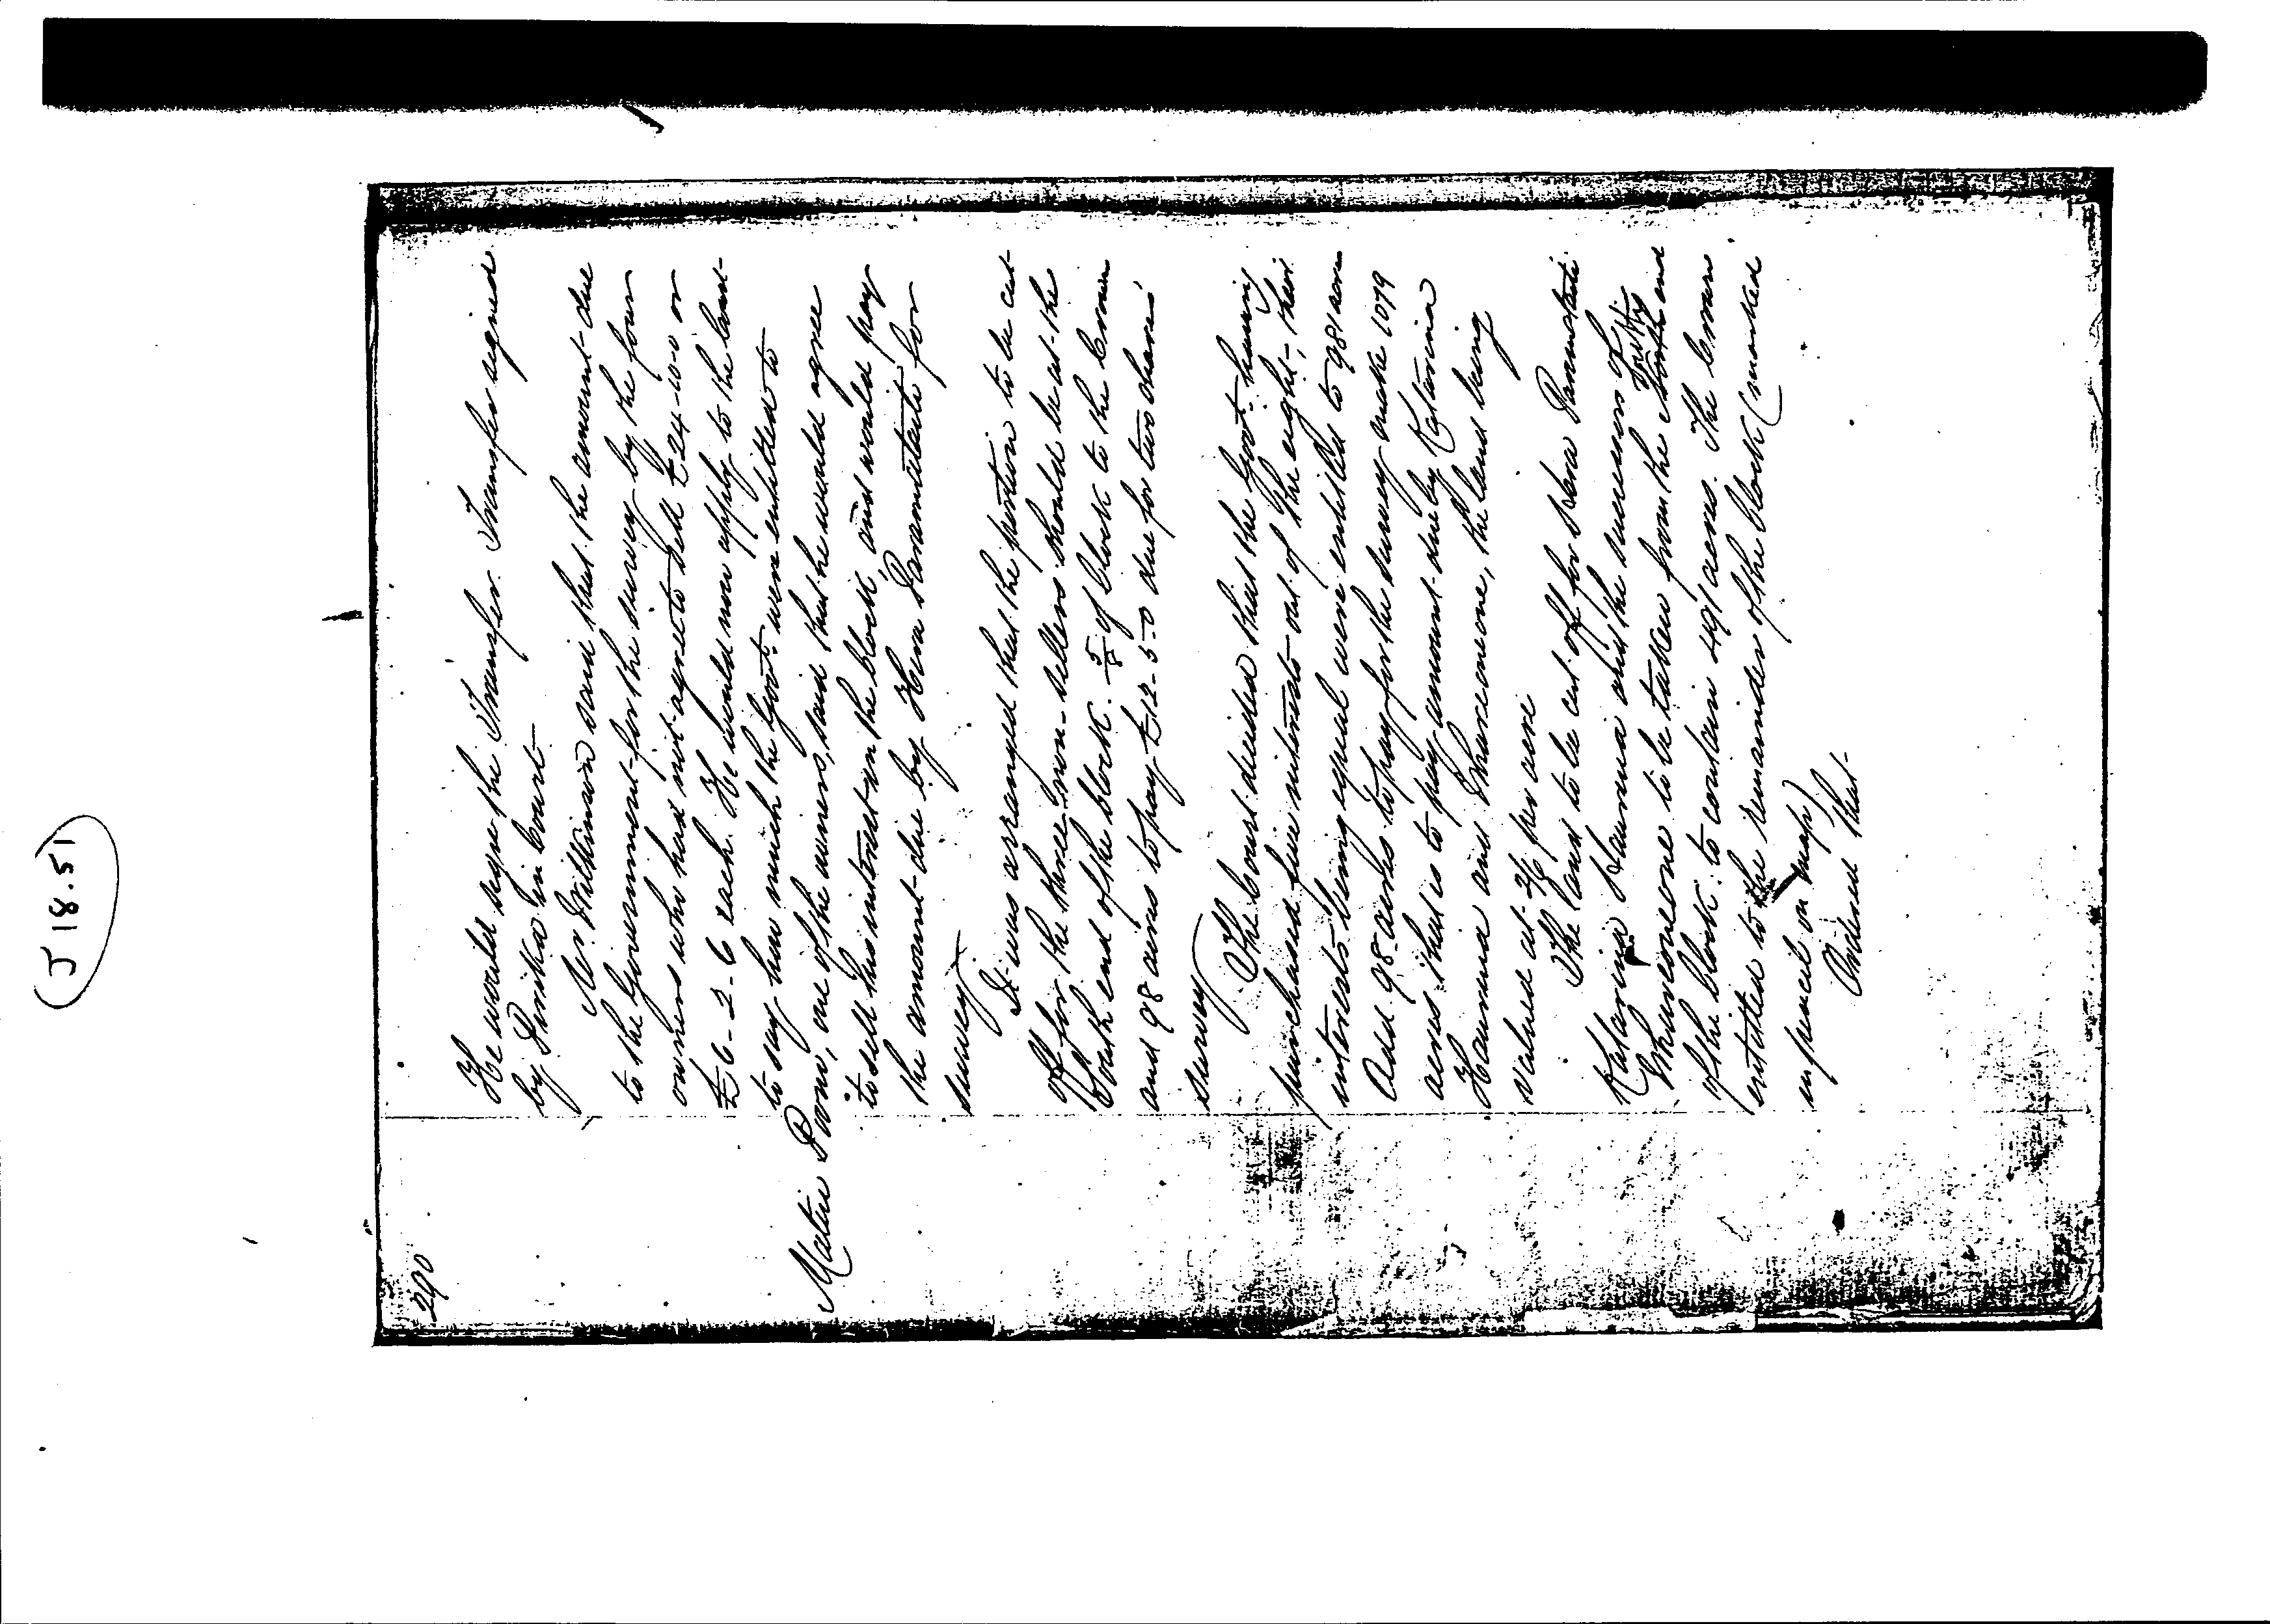 (J 18.51)
290
He would sign the transfer. Transfer signed
by in Court
Mr. Wilkinson said that the amount due
to the Government for the survey by the four
owners who had not agreed to sell £24-10-0 or
£6-2-6 each. He would now apply to the Court
to say how much the Govt. were entitled to
Matiu one of the owners, said that he would agree
to sell his interest in the block and would pay
the amount due by Hera Paramatate for
survey.
It was arranged that the portion to be cut
off for the three non-sellers should be at the
South end of the block. 5/8 of block to the Crown
and 98 acres to pay £12-5-0 due for two shares
survey
The Court decided that the Govt. having
purchased five interests out of the eight, their
interests being equal were entitled to 981 acres
Add 98 acres to pay for the survey make 1079
acres that is to pay amount due by Katarina
Haunia and the land being
valued at 2/6 per acre
The land to be cut off for Hera Paramatate
Katarina Haunia and the successors of
to be taken from the South end
of the block: to contain 491 acres. The Crown
entitled to the remainder of the block (marked
in pencil on map)
Ordered that